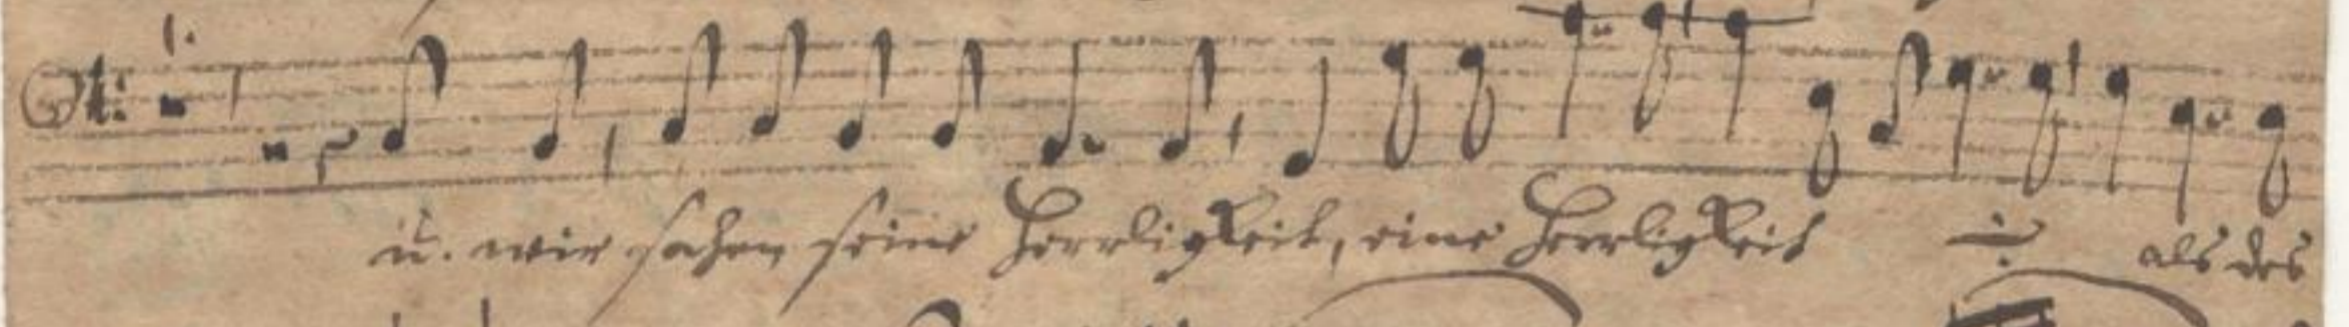 1.
u. wir sahen seine Herrligkeit, eine Herrligkeit als des